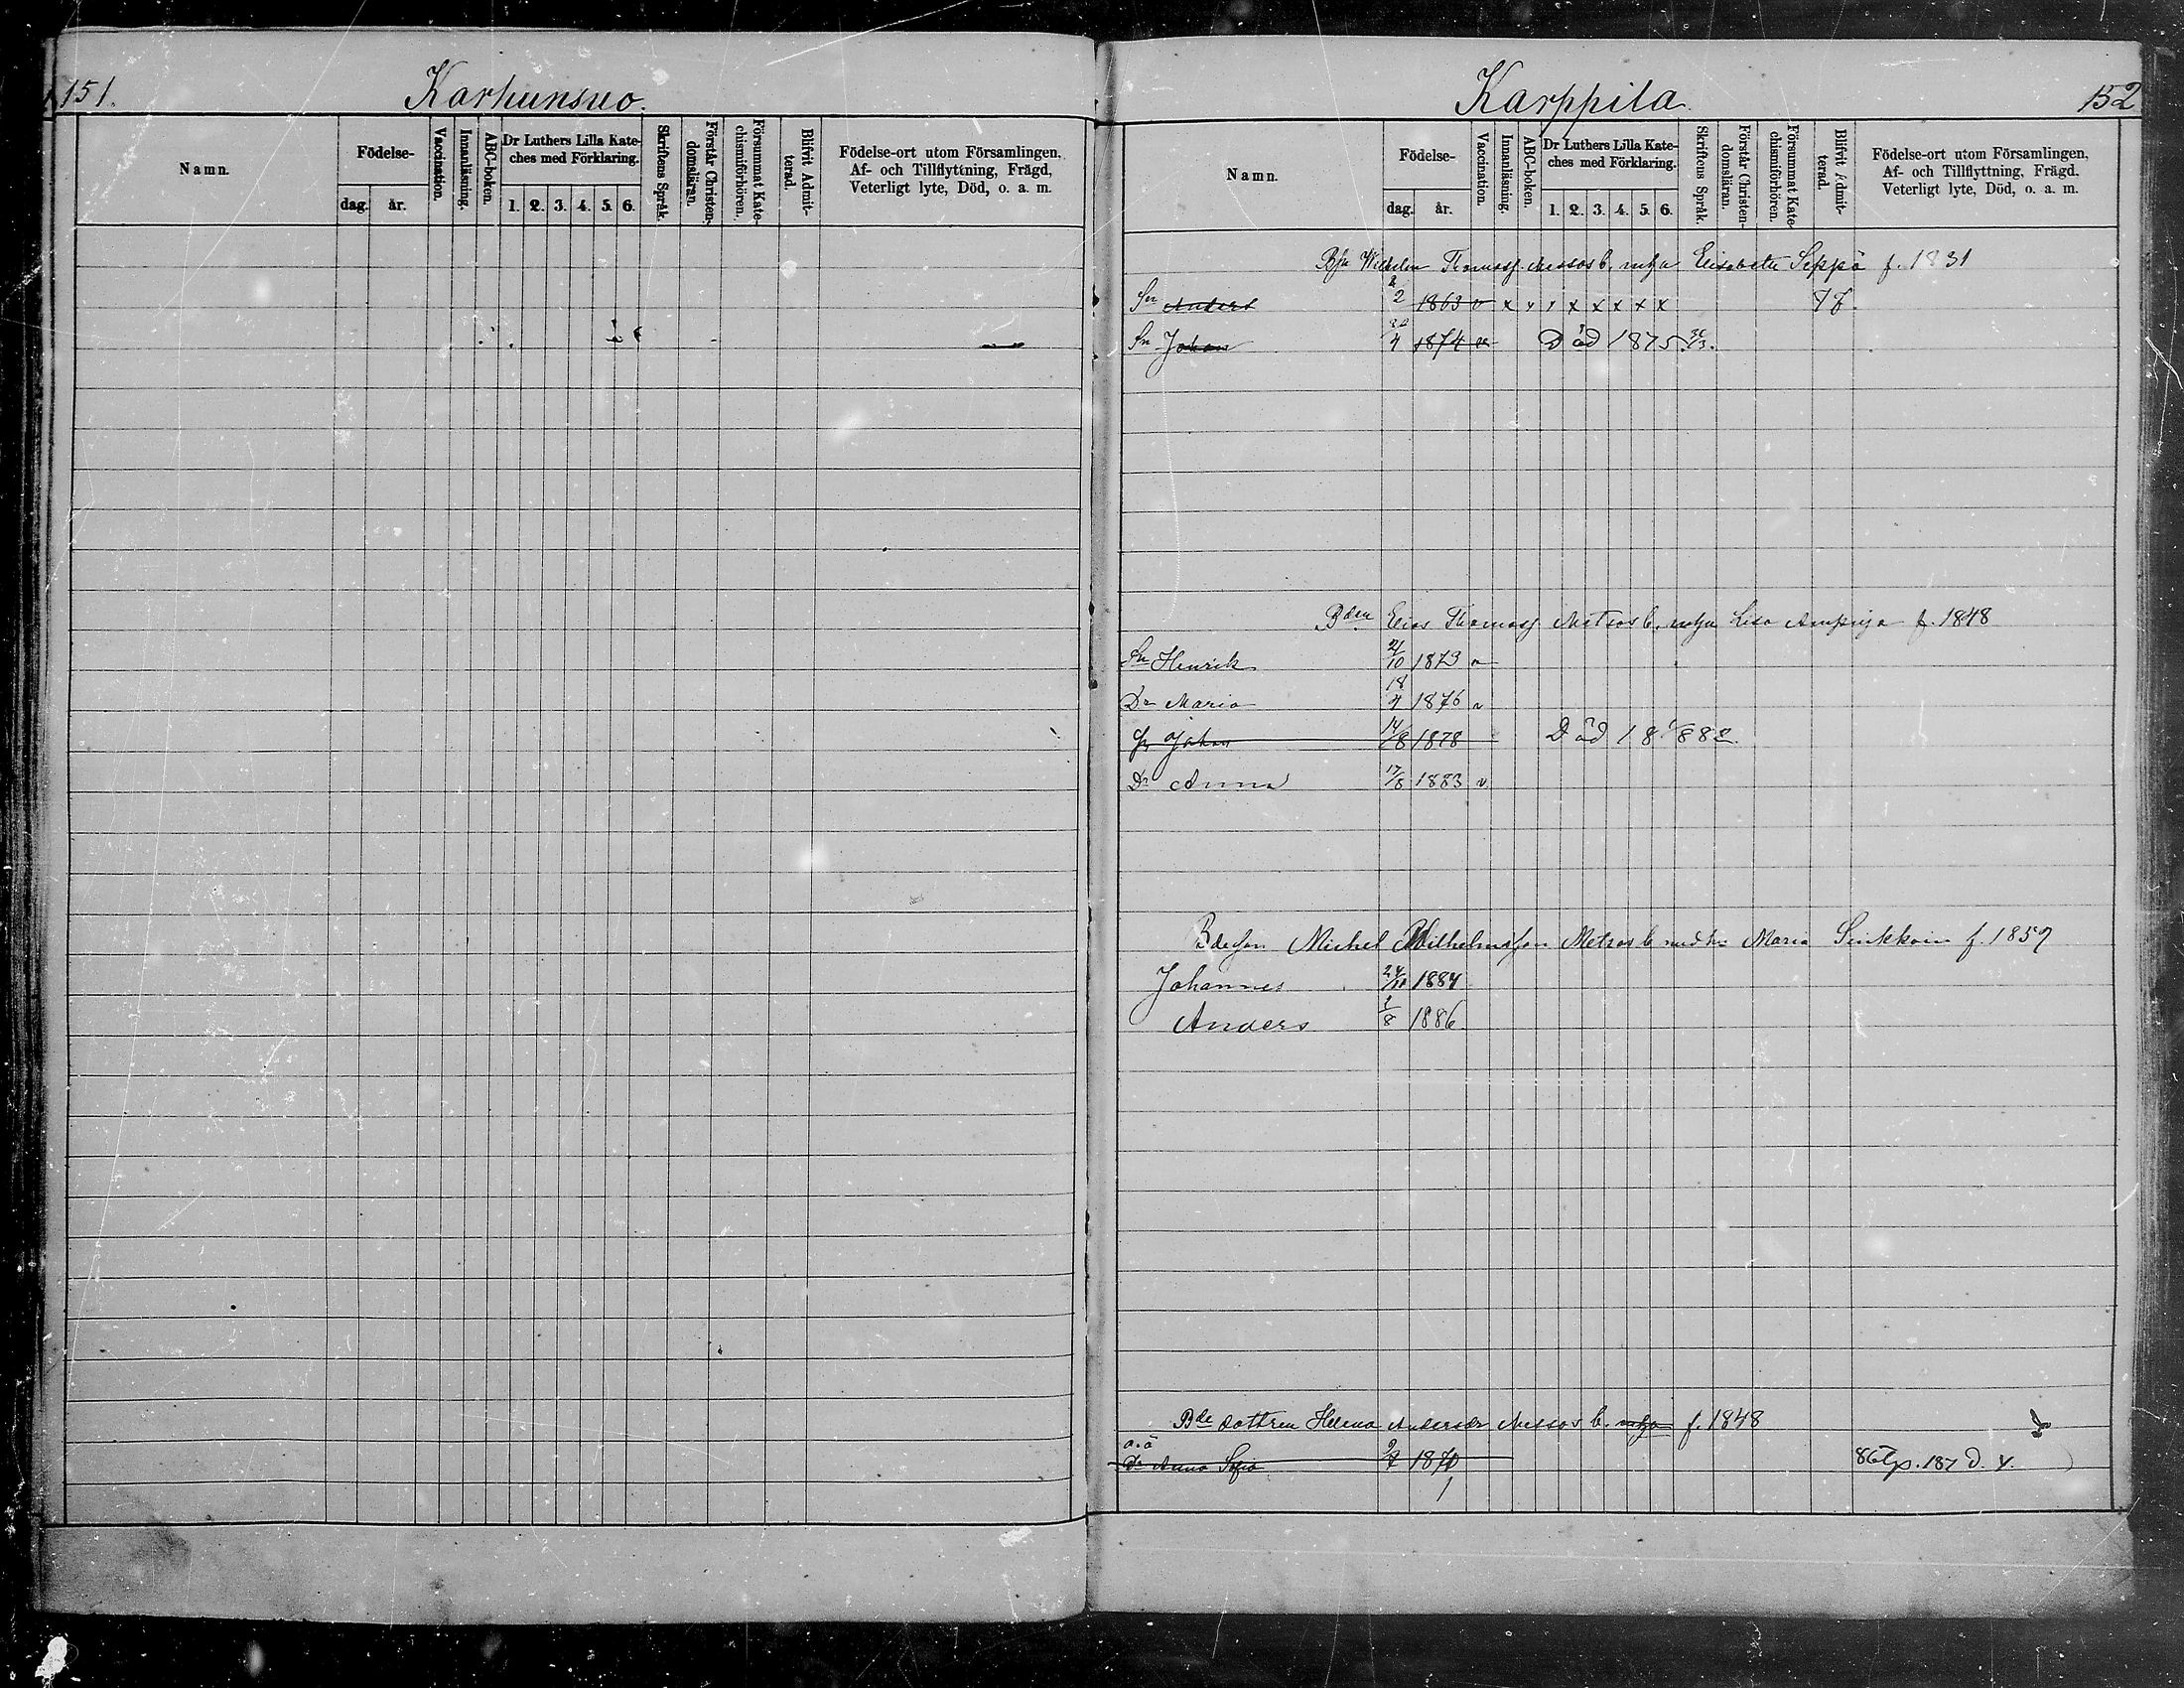 151.
Karhunsuo.
Namn.
Födelse-
dag.
år.
Vaccination.
Innanläsning.
ABC-boken.
Dr Luthers Lilla Kate-
ches med Förklaring.
1. 2. 3. 4. 5. 6.
Skriftens Språk.
Förstår Christen-
domsläran.
Försummat Kate-
chismiförhören.
Blifvit Admit-
terad.
Födelse-ort utom Församlingen,
Af- och Tillflyttning, Frägd,
Veterligt lyte, Död, o. a. m.
Karppila.
152
Namn.
Födelse-
dag.
år.
Vaccination.
Innanläsning.
ABC-boken.
Dr Luthers Lilla Kate-
ches med Förklaring.
1. 2. 3. 4. 5. 6.
Skriftens Språk.
Förstår Christen-
domsläran.
Försummat Kate-
chismiförhören.
Blifvit Admit-
terad.
Födelse-ort utom Församlingen,
Af- och Tillflyttning, Frägd.
Veterligt lyte, Död, o. a. m.
Wilhelm Thomass. b. Elisabeth Seppä f. 1831
Sn Anders 2/2 1863 v x x x x x x x x
Sn Johan 4 1874 v Död 1875
Bden Elias Thomass Metsos b. Lisa f. 1848
Sn Henrik 10 1873 v
Dr Maria 18/4 1876 v
Sn Johan 14/8 1878 Död 1882
Dr Anna 17/8 1883 v
Bdeson Michel Wilhelmsson Metsos b. Maria Sinkkoin f. 1857
Johannes 1884
Anders 1/8 1886.
Bde dottren Helena Andersdr b. f. 1848
o.ä
Dr Anna Sofia 1870
1